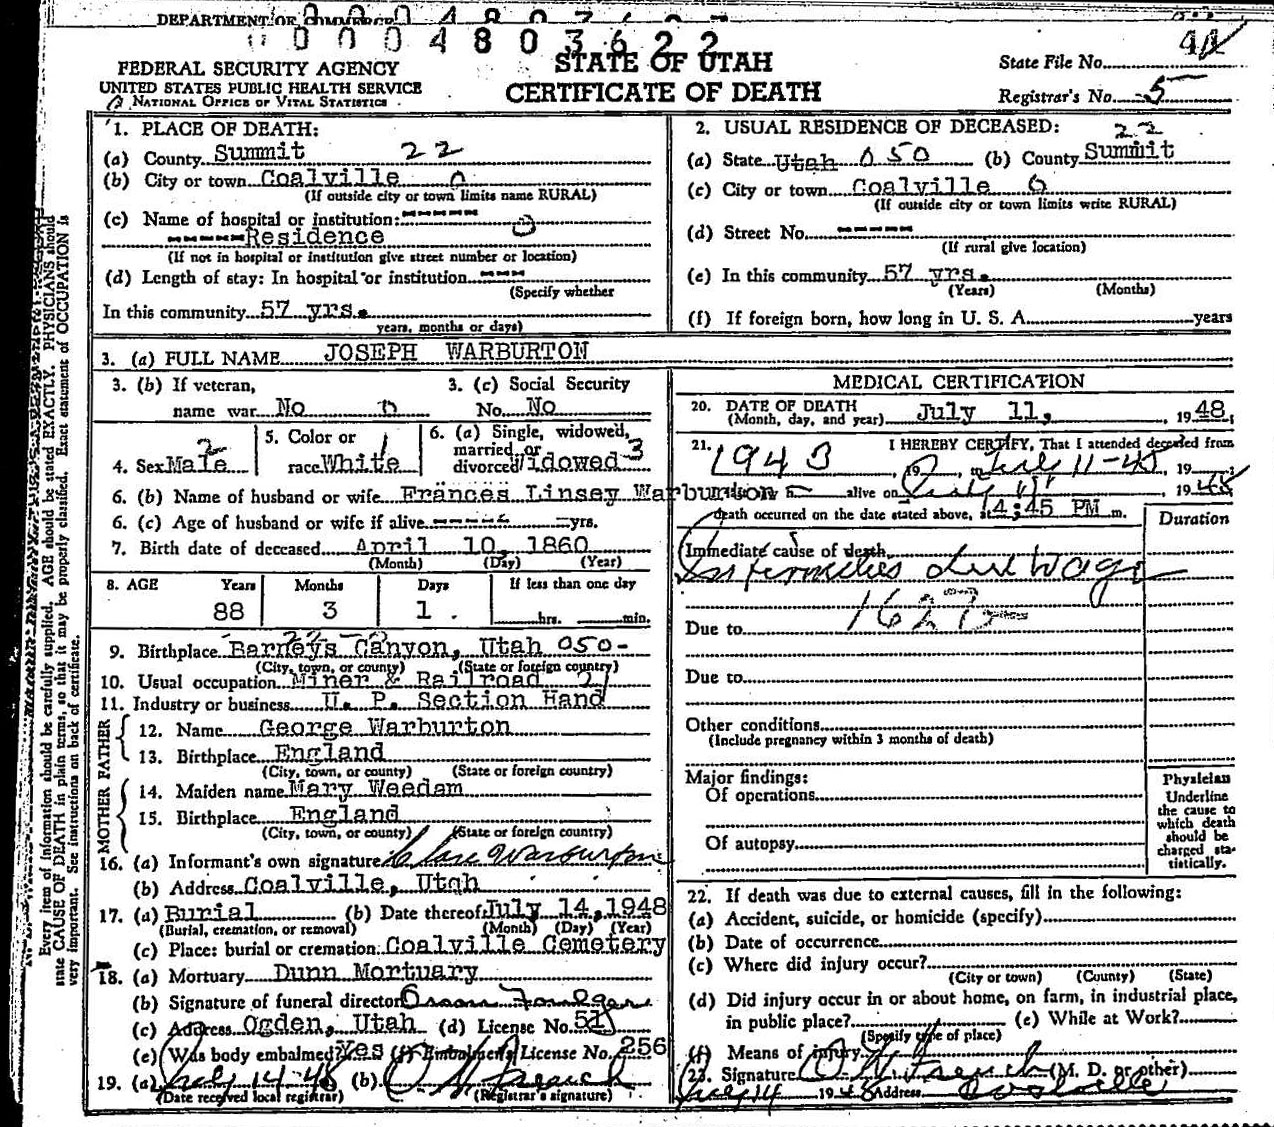 DEPARTMENT OF COMMERCE
0 0 0 4 8 0 3 6 2 2
STATE OF UTAH
CERTIFICATE OF DEATH
FEDERAL SECURITY AGENCY
UNITED STATES PUBLIC HEALTH SERVICE
NATIONAL OFFICE OF VITAL STATISTICS
State File No. 41
Registrar's No. 5
1. PLACE OF DEATH:
(a) County Summit 22
(b) City or town Coalville 0
(If outside city or town limits name RURAL)
(c) Name of hospital or institution: -----
-----Residence
(If not in hospital or institution give street number or location)
(d) Length of stay: In hospital or institution ---
(Specify whether
In this community 57 yrs.
years, months or days)
2. USUAL RESIDENCE OF DECEASED:
22
(a) State Utah 050 (b) County Summit
(c) City or town Coalville 0
(If outside city or town limits write RURAL)
(d) Street No. -----
(If rural give location)
(e) In this community 57 yrs.
(Years) (Months)
(f) If foreign born, how long in U. S. A. years
3. (a) FULL NAME JOSEPH WARBURTON
3. (b) If veteran,
name war No 0
3. (c) Social Security
No. No
4. Sex Male 2
5. Color or
race White 1
6. (a) Single, widowed,
married, or
divorced Widowed 3
6. (b) Name of husband or wife Frances Linsey Warburton
6. (c) Age of husband or wife if alive ------ yrs.
7. Birth date of deceased April 10, 1860
(Month) (Day) (Year)
8. AGE Years Months Days If less than one day
88 3 1 hrs. min.
9. Birthplace Barneys Canyon, Utah 050-
(City, town, or county) (State or foreign country)
10. Usual occupation Miner & Railroad 21
11. Industry or business U. P. Section Hand
FATHER
12. Name George Warburton
13. Birthplace England
(City, town, or county) (State or foreign country)
MOTHER
14. Maiden name Mary Weedam
15. Birthplace England
(City, town, or county) (State or foreign country)
16. (a) Informant's own signature Warburton
(b) Address Coalville, Utah
17. (a) Burial (b) Date thereof July 14, 1948
(Burial, cremation, or removal) (Month) (Day) (Year)
(c) Place: burial or cremation Coalville Cemetery
18. (a) Mortuary Dunn Mortuary
(b) Signature of funeral director
(c) Address Ogden, Utah (d) License No. 51
(e) Was body embalmed? Yes (f) Embalmer's License No. 256
19. (a) July 14-48 (b)
(Date received local registrar) (Registrar's signature)
MEDICAL CERTIFICATION
20. DATE OF DEATH
(Month, day, and year) July 11, 1948;
21. I HEREBY CERTIFY, That I attended deceased from
1943, 19 to July 11-48, 19
alive on July 11, 1948
death occurred on the date stated above, at 4:45 PM m.
Duration
Immediate cause of death
Infirmities due to age
162
Due to
Due to
Other conditions
(Include pregnancy within 3 months of death)
Major findings:
Of operations
Of autopsy
Physician
Underline
the cause to
which death
should be
charged sta-
tistically.
22. If death was due to external causes, fill in the following:
(a) Accident, suicide, or homicide (specify)
(b) Date of occurrence
(c) Where did injury occur?
(City or town) (County) (State)
(d) Did injury occur in or about home, on farm, in industrial place,
in public place? (e) While at Work?
(Specify type of place)
(f) Means of injury
23. Signature (M. D. or other)
July 14 1948 Address Coalville
Every item of information should be carefully supplied. AGE should be stated EXACTLY. PHYSICIANS should
state CAUSE OF DEATH in plain terms, so that it may be properly classified. Exact statement of OCCUPATION is
very important. See instructions on back of certificate.